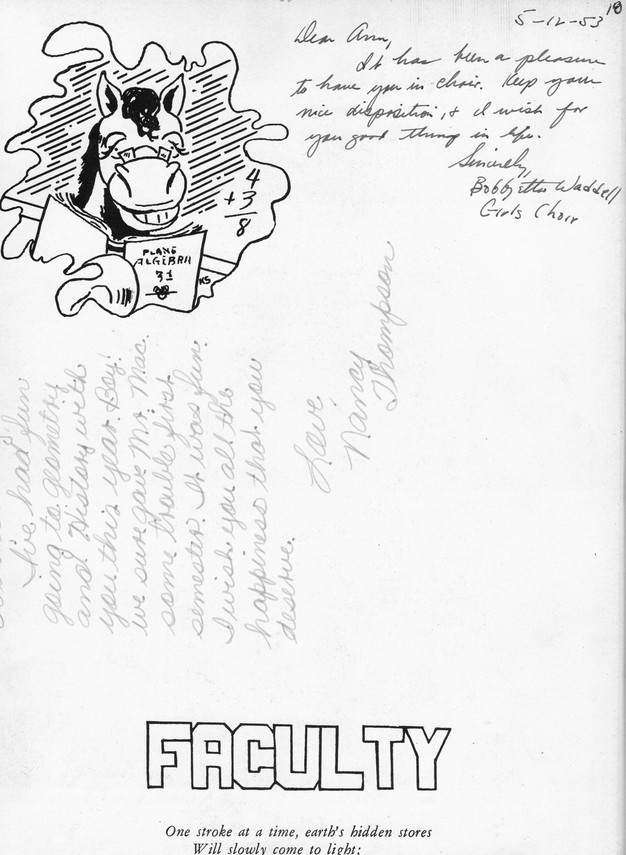 18
5-12-53
Dear Ann,
It has been a pleasure
to have you in choir. Keep your
nice disposition, & I wish for
you good things in life.
Sincerely,
Bobbyetta Waddell
Girls Choir
4
+ 3
8
PLANE
ALGEBRA
31
KS
I've had fun
going to geometry
and History with
you this year. Boy!
we sure gave Mr. Mac.
some trouble first
semester. It was fun.
I wish you all the
happiness that you
deserve.
Love,
Nancy
Thompson
FACULTY
One stroke at a time, earth's hidden stores
Will slowly come to light;